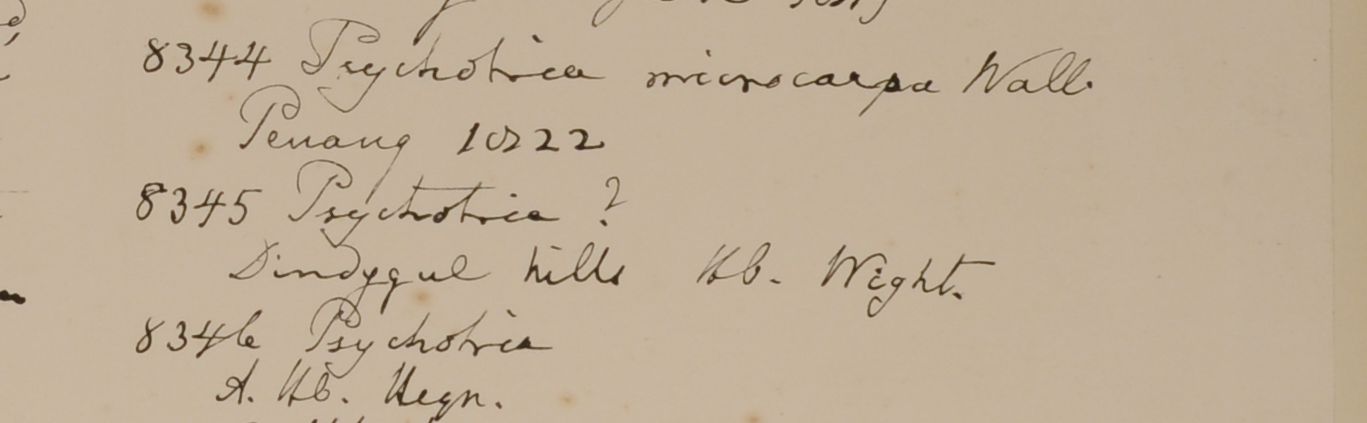 8344 Psychotria microcarpa Wall.
Penang 1822
8345 Psychotria ?
Dindygul hills Hb. Wight.
8346 Psychotria
A. Hb. Heyn.